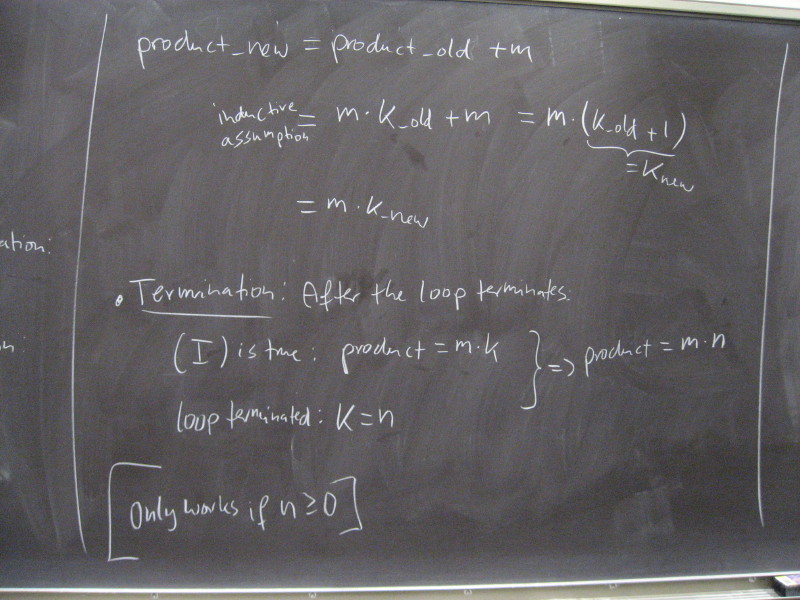 product_new = product_old + m
inductive assumption = m · K_old + m = m · (K_old + 1)
= K_new
= m · K_new
ation:
• Termination: After the loop terminates:
(I) is true: product = m · k } => product = m · n
n:
loop terminated: K = n
[Only works if n ≥ 0]